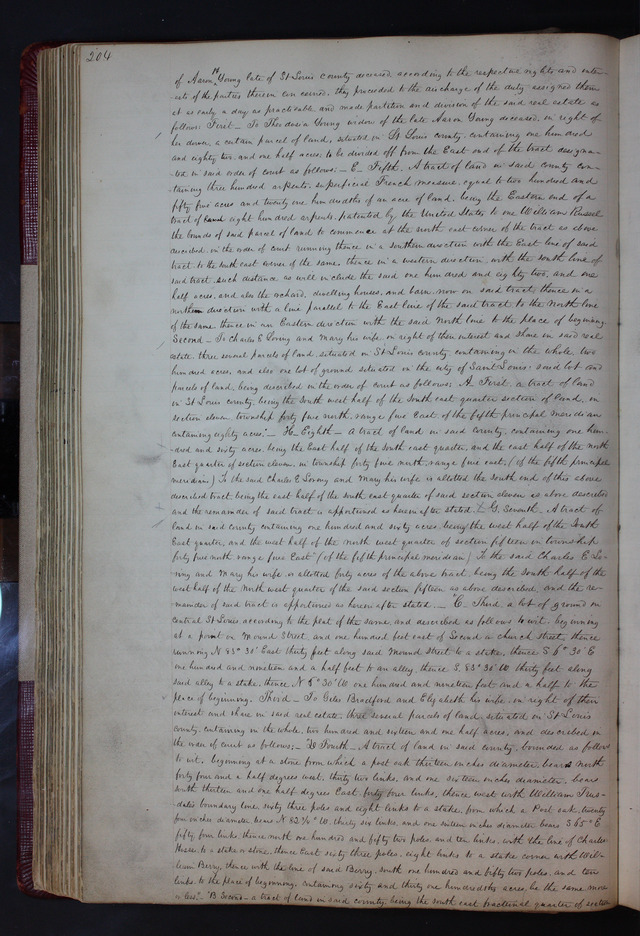 204
of Aaron Young late of St Louis county deceased according to the respective rights and inter-
ests of the parties therein concerned, they proceeded to the discharge of the duty assigned them
at as early a day as practicable and made partition and division of the said real estate as
follows: First – To Theodosia Young widow of the late Aaron Young deceased, in right of
her dower, a certain parcel of land, situated in St Louis county, containing one hundred
and eighty two, and one half acres, to be divided off from the East end of the tract designa-
ted in said order of court as follows; – E – Fifth, A tract of land in said county con-
taining three hundred arpents, superficial French measure, equal to two hundred and
fifty five acres and twenty one hundredths of an acre of land, being the Eastern end of a
tract of eight hundred arpents, patented by the United States to one William Russel
the bounds of said parcel of land to commence at the north east corner of the tract as above
described, in the order of court running thence in a southern direction with the East line of said
tract to the south east corner of the same, thence in a western direction, with the south line of
said tract, such distance as will include the said one hundred and eighty two, and one
half acres, and also the orchard, dwelling houses, and barn, now on said tract, thence in a
northern direction with a line parallel to the East line of the said tract to the North line
of the same, thence in an Eastern direction with the said North line to the place of beginning.
Second – To Charles E Loving and Mary his wife, in right of their interest and share in said real
estate, three several parcels of land, situated in St Louis county, containing in the whole, two
hundred acres, and also one lot of ground situated in the city of Saint Louis; said lot and
parcels of land, being described in the order of court as follows; A First, a tract of land
in St Louis county, being the South west half of the South east quarter section of land, in
section eleven, township forty five north, range five East of the fifth principal meridian
containing eighty acres." – H – Eighth – a tract of land in said county, containing one hun-
dred and sixty acres, being the East half of the south east quarter, and the east half of the north
East quarter of section eleven, in township forty five north, range five east, (of the fifth principal
meridian.) To the said Charles E Loving and Mary his wife, is allotted the south end of this above
described tract being the east half of the south east quarter of said section eleven as above described
and the remainder of said tract is apportioned as hereinafter stated. – G, Seventh, A tract of
land in said county containing one hundred and sixty acres, being the west half of the South
East quarter, and the west half of the north west quarter of section fifteen in township
forty five north range five East" (of the fifth principal meridian) To the said Charles E Lo-
ving and Mary his wife, is allotted forty acres of the above tract, being the south half of the
west half of the North west quarter of the said section fifteen as above described, and the re-
mainder of said tract is apportioned as herein after stated. – "C, Third, a lot of ground in
central St Louis according to the plat of the same, and described as follows to wit, beginning
at a point on Mound Street, and one hundred feet east of Second a church street, thence
running N 83° 30' East thirty feet along said Mound street to a stake, thence S. 6° 30' E
one hundred and nineteen and a half feet to an alley, thence S. 83° 30' W. thirty feet along
said alley to a stake, thence N 6° 30' W. one hundred and nineteen feet and a half to the
place of beginning. Third – To Giles Bradford and Elizabeth his wife, in right of their
interest and share in said real estate, three several parcels of land, situated in St Louis
county, containing in the whole, two hundred and sixteen and one half acres, and described in
the order of court as follows; – D Fourth – A tract of land in said county, bounded as follows
to wit, beginning at a stone from which a post oak thirteen inches diameter, bears north
forty four and a half degrees west, thirty two links, and one sixteen inches diameter, bears
south thirteen and one half degrees East, forty four links, thence west with William Tis-
dales boundary line, sixty three poles and eight links to a stake, from which a Post oak, twenty
four inches diameter bears N 82½° W. thirty six links, and one sixteen inches diameter bears S 65° E
fifty four links, thence north one hundred and fifty two poles, and ten links, with the line of Charles
to a stake or stone, thence East sixty three poles, eight links to a stake corner with Wil-
liam Berry, thence with the line of said Berry, south one hundred and fifty two poles, and ten
links, to the place of beginning, containing sixty and thirty one hundredths acres, be the same more
or less." B Second – a tract of land in said county, being the south east fractional quarter of section